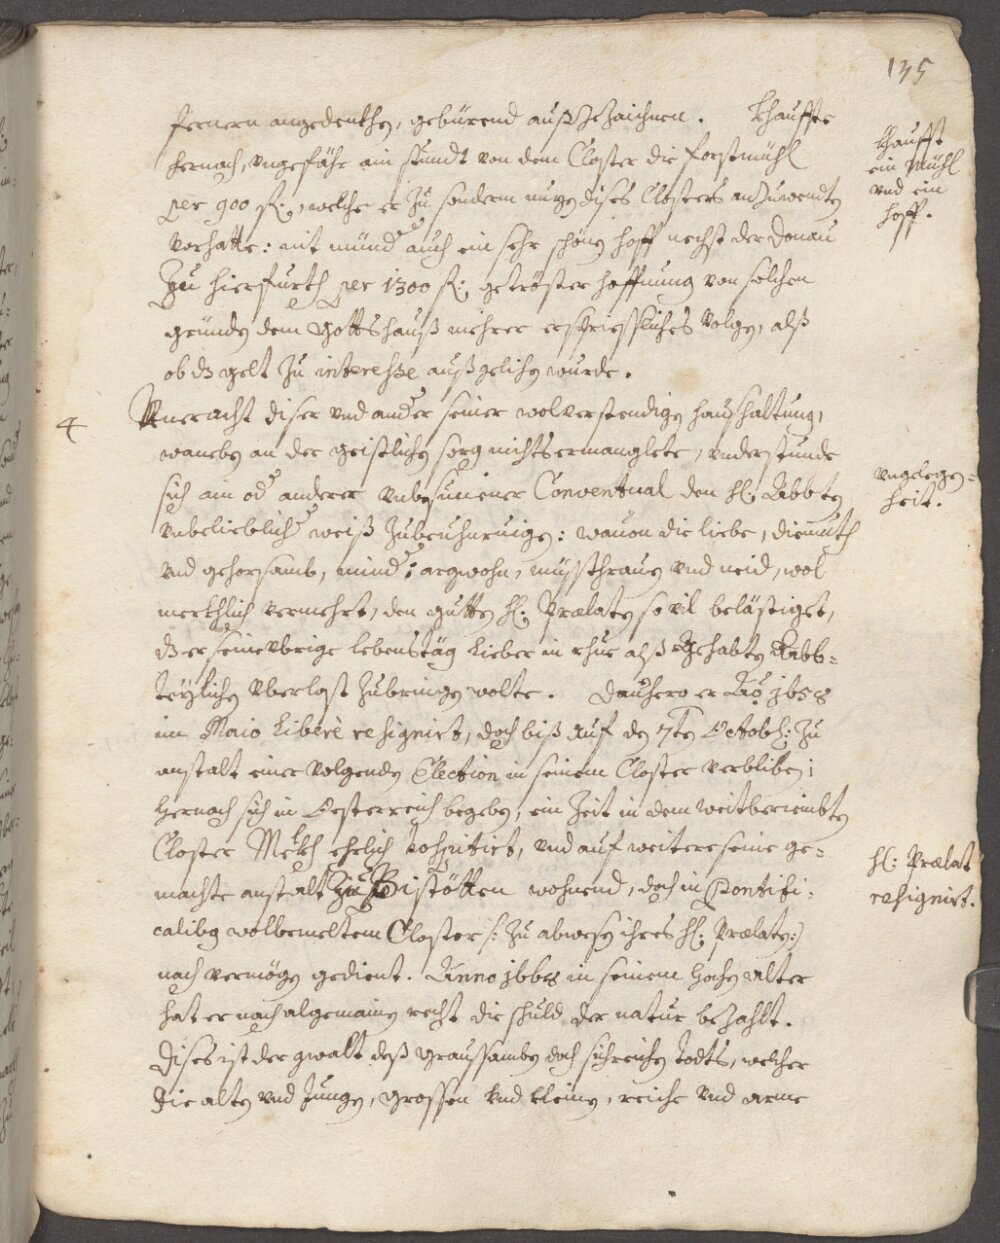 135
fernern angedenkhen, gebürend aufzuzaichnen. Khauffte
hernach, ungefähr ain stundt von dem Closter die forstmühl
per 900 fl:, welche er zu sonderm nuzen dises Closters anzuwendten
vorhatte: nit minder auch ein sehr schönen hoff nechst der Donau
zu Hierfurth per 1300 fl: getröster hoffnung von solchen
gründen dem Gottshauß mehrer erschiessliches volgen, alß
ob dz gelt zu interesse außgelihen wurde.
Khaufft
ein Mühl
vnd ein
hoff.
4
Vneracht diser vnd ander seiner wolverstendigen haushaltung,
waneben an der geistlichen sorg nichts ermanglete, vnderstunde
sich ain oder anderer vnbesunener Conventual den H: Abbten
vnbelieblicher weiß zubeunhrueigen: wauon die liebe, diemuth
vnd gehorsamb, minder: argwohn, missthrauen vnd neid, wol
merkhlich vermehrt, den gutten H: Prælaten so vil belästiget,
dz er seine vbrige lebenstäg lieber in rhue alß gehabten Abb-
teylichen vberlast zubringen wolte. Dauhero er Aõ 1658
im Maio liberè resignirt, doch biß auf den 7ten Octob: zu
anstalt einer volgenden Election in seinem Closter verbliben;
hernach sich in Oesterreich begeben, ein Zeit in dem weitberiembten
Closter Melkh ehrlich hospitirt, vnd auf weitere seine ge-
machte anstalt zu Bistötten wohnend, doch in Pontifi-
calibus wolbemeltem Closter /: zu abwesen ihres H: Prælaten :/
nach vermögen gedient. Anno 1668 in seinem hochen alter
hat er nach algemainen recht die schuld der natur bezahlt.
Dises ist der gwalt deß graussamben doch sichreichen todts, welcher
die alten vnd Jungen, grossen vnd kleinen, reiche vnd arme
vngelegen-
heit.
H: Prælat
resignirt.